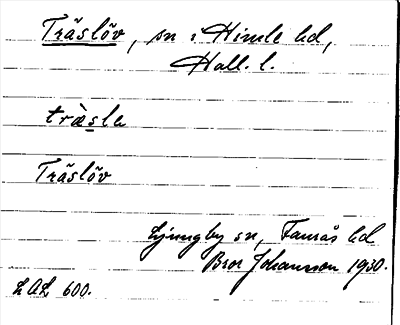 Träslöv, sn i Himle hd,
Hall. l.
træ̀sle
Träslöv
Ljungby sn, Faurås hd
Bror Johansson 1930.
LAL 600.